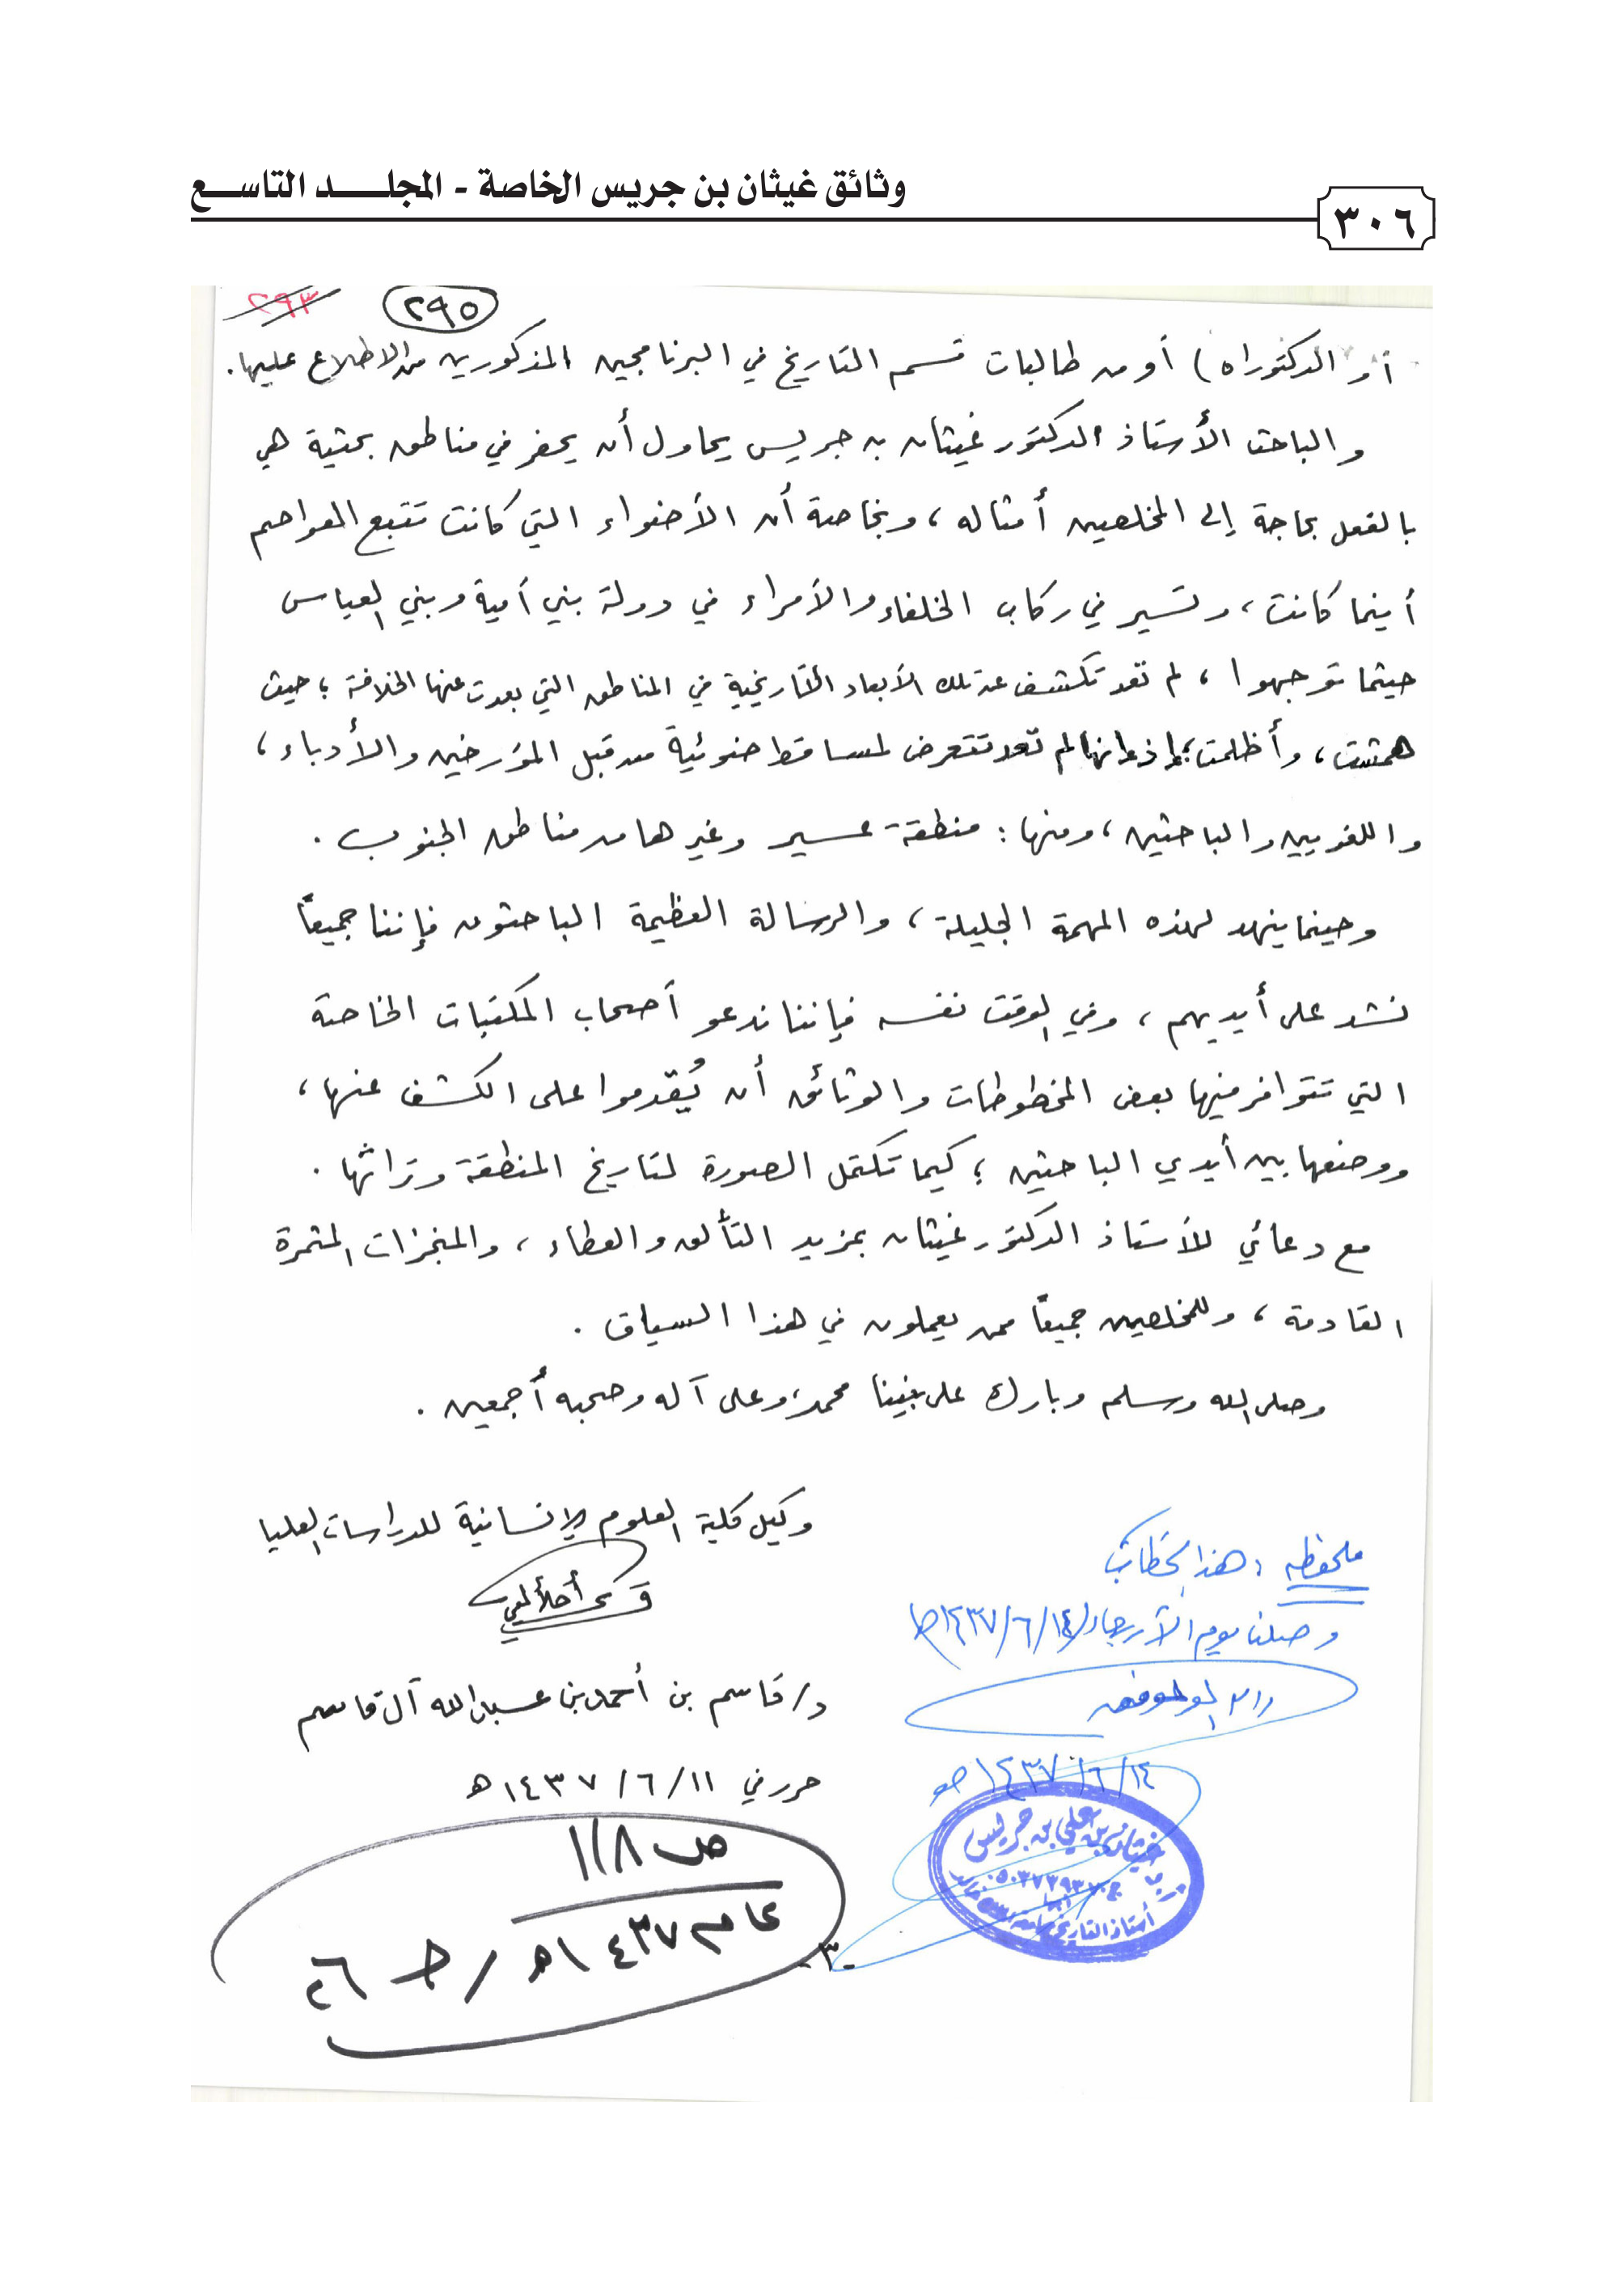 وثائق غيثان بن جريس الخاصة - المجلـــــد التاســـع
٣٠٦
٢٩٣
٢٩٥
أو الدكتوراه) أو من طالبات قسم التاريخ في البرنامجين المذكورين من الاطلاع عليها.
والباحث الأستاذ الدكتور غيثان بن جريس يحاول أن يحفر في مناطق بحثية هي
بالفعل بحاجة إلى المخلصين أمثاله، وبخاصة أن الأضواء التي كانت تتبع العواصم
أينما كانت، وتسير في ركاب الخلفاء والأمراء في دولة بني أمية وبني العباس
حيثما توجهوا، لم تعد تكشف عن تلك الأبعاد التاريخية في المناطق التي بعدت عنها الخلافة؛ حيث
همشت، وأظلمت؛ إذ إنها لم تعد تتعرض لمساقط ضوئية من قبل المؤرخين والأدباء،
واللغويين والباحثين، ومنها: منطقة عسير وغيرها من مناطق الجنوب.
وحينما ينهد لهذه المهمة الجليلة، والرسالة العظيمة الباحثون فإننا جميعًا
نشد على أيديهم، وفي الوقت نفسه فإننا ندعو أصحاب المكتبات الخاصة
التي تتوافر فيها بعض المخطوطات والوثائق أن يُقدموا على الكشف عنها،
ووضعها بين أيدي الباحثين؛ كيما تكتمل الصورة لتاريخ المنطقة وتراثها.
مع دعائي للأستاذ الدكتور غيثان بمزيد التألق والعطاء، والمنجزات المثمرة
القادمة، وللمخلصين جميعًا ممن يعملون في هذا السياق.
وصلى الله وسلم وبارك على نبينا محمد، وعلى آله وصحبه أجمعين.
وكيل كلية العلوم الإنسانية للدراسات العليا
د/ قاسم بن أحمد بن عبدالله آل قاسم
حرر في ١١/ ٦/ ١٤٣٧هـ
ملحوظة: هذا الخطاب
وصلنا يوم الأربعاء ١٤/٦/١٤٣٧هـ
والله الموفق
١٤/٦/١٤٣٧هـ
غيثان بن علي بن جريس
أستاذ التاريخ
ص ١١٨
عام ١٤٣٧هـ / جـ ٢٦
-٣-